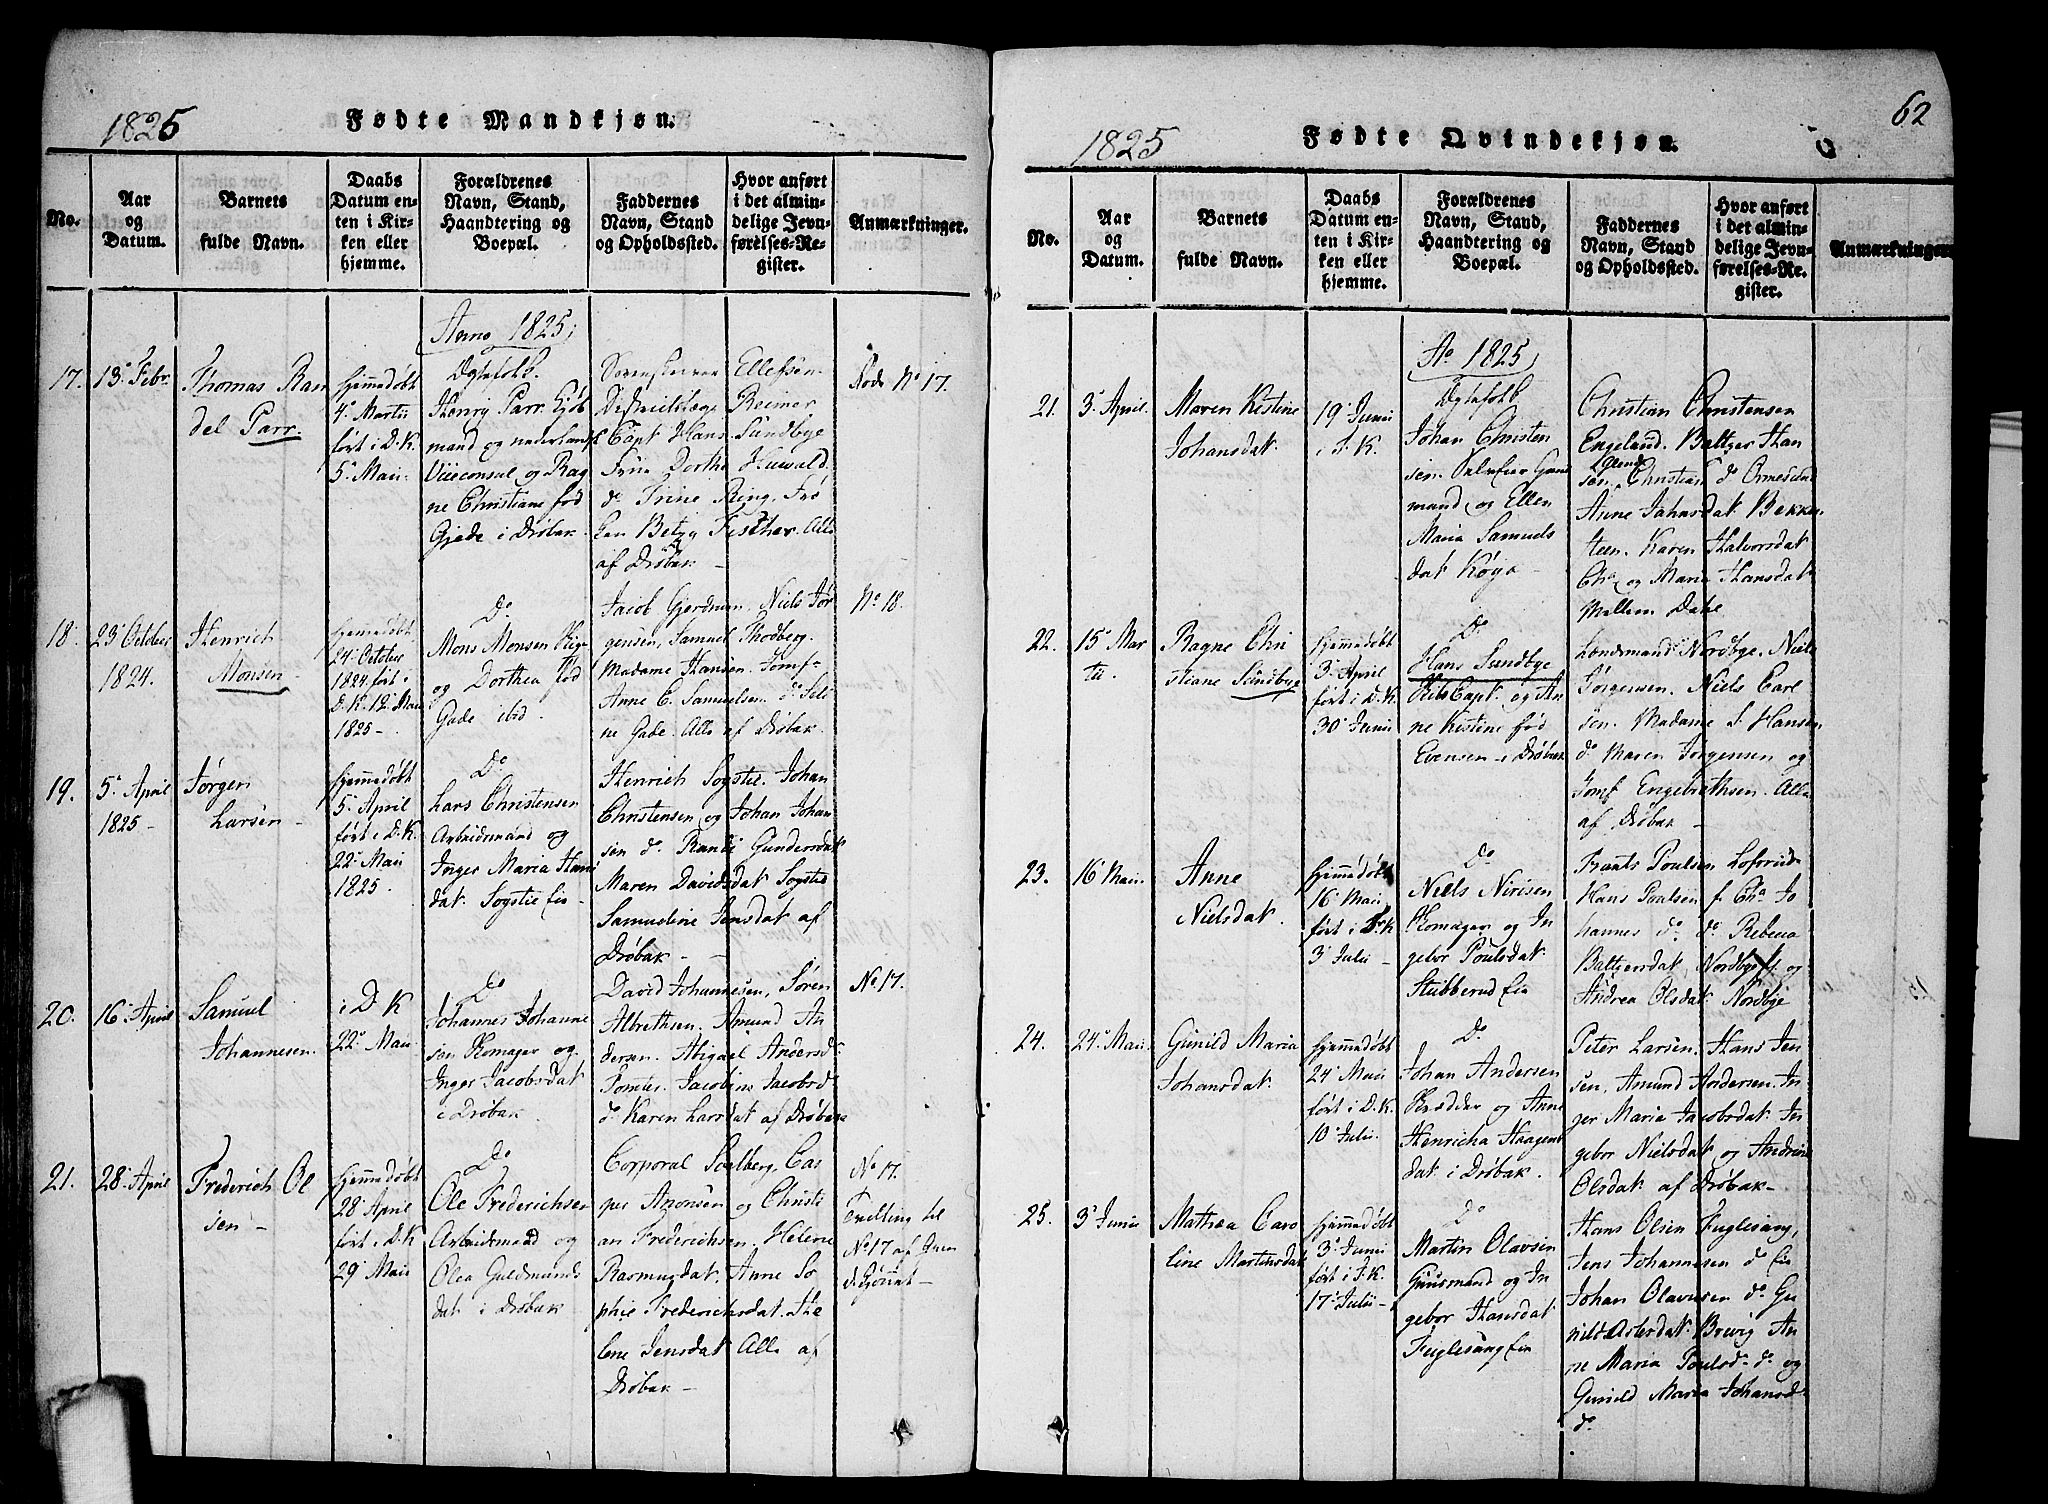 1825
Fødte Mandkjøn.
No.
Aar
og
Datum.
Barnets
fulde Navn.
Daabs
Datum en-
ten i Kir-
ken eller
hjemme.
Forældrenes
Navn, Stand,
Haandtering og
Boepæl.
Faddernes
Navn, Stand
og Opholdssted.
Hvor anført
i det almin-
delige Jevn-
førelses-Re-
gister.
Anmærkninger.
Anno 1825,
17.
13de Febr.
Thomas Ran
del Parr.
hjemmedøbt
4de Martii
ført i D. K.
5te Maii
Ægtefolk
Henry Parr Kjøb
mand og nederlansk
Viceconsul og Rag
ne Christiane fød
Gjøde i Drøbak
Sorenskriver Ellefsen
Districtslæge Reimer
Capt. Hans Sundbye
Frue Dorthe Huwald
do Trine Ring, Frø
ken Betzy Fischer. Alle
af Drøbak
Node No 17.
18.
23de October
1824.
Henrich
Monsen
hjemmedøbt
24de October
1824 ført i
D. K. 12te Maii
1825
Do
Mons Monsen
og Dorthea fød
Gade ibid.
Jacob Gjerdrum, Niels Jør
gensen, Samuel Thodberg.
Madame Hansen. Jomf.
Anne C. Samuelsen. do Seli
ne Gade. Alle af Drøbak
No 18.
19.
5te April
1825
Jørgen
Larsen
hjemmedøbt
5te April
ført i D. K.
22de Maii
1825.
Do
Lars Christensen
Arbeidsmand og
Inger Maria Hans
dat. Sogstie Eie
Henrich Sogstie. Johan
Christensen og Johan Johan
sen do Randi Gundersdat
Maren Davidsdat Sogstie
Samueline Jensdat af
Drøbak
20.
16de April
Samuel
Johannesen.
i D K
22de Maii
Do
Johannes Johanne
sen Skomager og
Inger Jacobsdat
i Drøbak
David Johannesen, Søren
Albrethsen. Amund An
dersen. Abigael Andersd.
Tomter. Jacobine Jacobsd
do Karen Larsdat af Drøbak
No 17.
21.
28de April
Frederich Ol
sen
hjemmedøbt
28de April
ført i D. K
29de Maii
Do
Ole Frederichsen
Arbeidsmand og
Olea Guldmunds
dat. i Drøbak
Corporal Solberg, Cas
per Aronsen og Christi
an Frederichsen. Helene
Rasmusdat. Anne So
phie Frederichsdat. He
lene Jensdat Alle af
Drøbak
No 17.
Tvilling til
No 17 af
62
1825
Fødte Qvindekjøn.
No.
Aar
og
Datum.
Barnets
fulde Navn.
Daabs
Datum en-
ten i Kir-
ken eller
hjemme.
Forældrenes
Navn, Stand,
Haandtering og
Boepæl.
Faddernes
Navn, Stand
og Opholdssted.
Hvor anført
i det almin-
delige Jevn-
førelses-Re-
gister.
Anmærkninger
Ao 1825,
21.
3de April.
Maren Kistine
Johansdat.
19de Junii
i F. K.
Ægtefolk
Johan Christen
sen Selveier Gaard
mand og Ellen
Maria Samuels
dat Køya
Christian Christensen
Engelund. Baltzer Han
sen, Christian do Ormesund
Anne Jahnsdat Bekken
steen. Karen Halvorsdat
Cho og Maria Hansdat
Mellem Dahl
22.
15de Mar
tii
Ragne Chri
stiane Sundbye
hjemmedøbt
3de April
ført i D. K
30te Junii
Do
Hans Sundbye
Skibs Capt. og An
ne Kistine fød
Evensen i Drøbak
Lensmand Nordbye. Niels
Jørgensen. Niels Carl
sen. Madame S. Hansen
do Maren Jørgensen og
Jomf Engebrethsen. Alle
af Drøbak
23.
16de Maii.
Anne
Nielsdat.
hjemmedøbt
16de Maii
ført i D. K
3de Julii
Do
Niels Nirisen
Skomager og In
gebor Poulsdat.
Stubberud Eie
Frants Poulsen
Hans Poulsen f. Cho Jo
hannes do do Rebecca
Baltzersdat Nordbye og
Andrea Olsdat Nordbye
24.
24de Maii.
Gunild Maria
Johansdat.
hjemmedøbt
24de Maii
ført i D. K.
10de Julii.
Do
Johan Andersen
Skrædder og Anne
Henricha Haagens
dat. i Drøbak.
Peter Larsen. Hans Jen
sen, Amund Andersen. In
ger Maria Jacobsdat. In
gebor Nielsdat og Andrine
Olsdat af Drøbak
25.
3de Junii
Mathea Caro
line Martinsdat
hjemmedøbt
3de Junii
ført i F. K.
17de Julii
Do
Martin Olavsen
Huusmand og In
gebor Hansdat
Fuglesang Eie
Hans Olsen Fuglesang,
Jens Johannesen do Eie
Johan Olavesen do Gu
nild Astersdat. Brevig An
ne Maria Poulsd. do og
Gunild Maria Johansd.
do